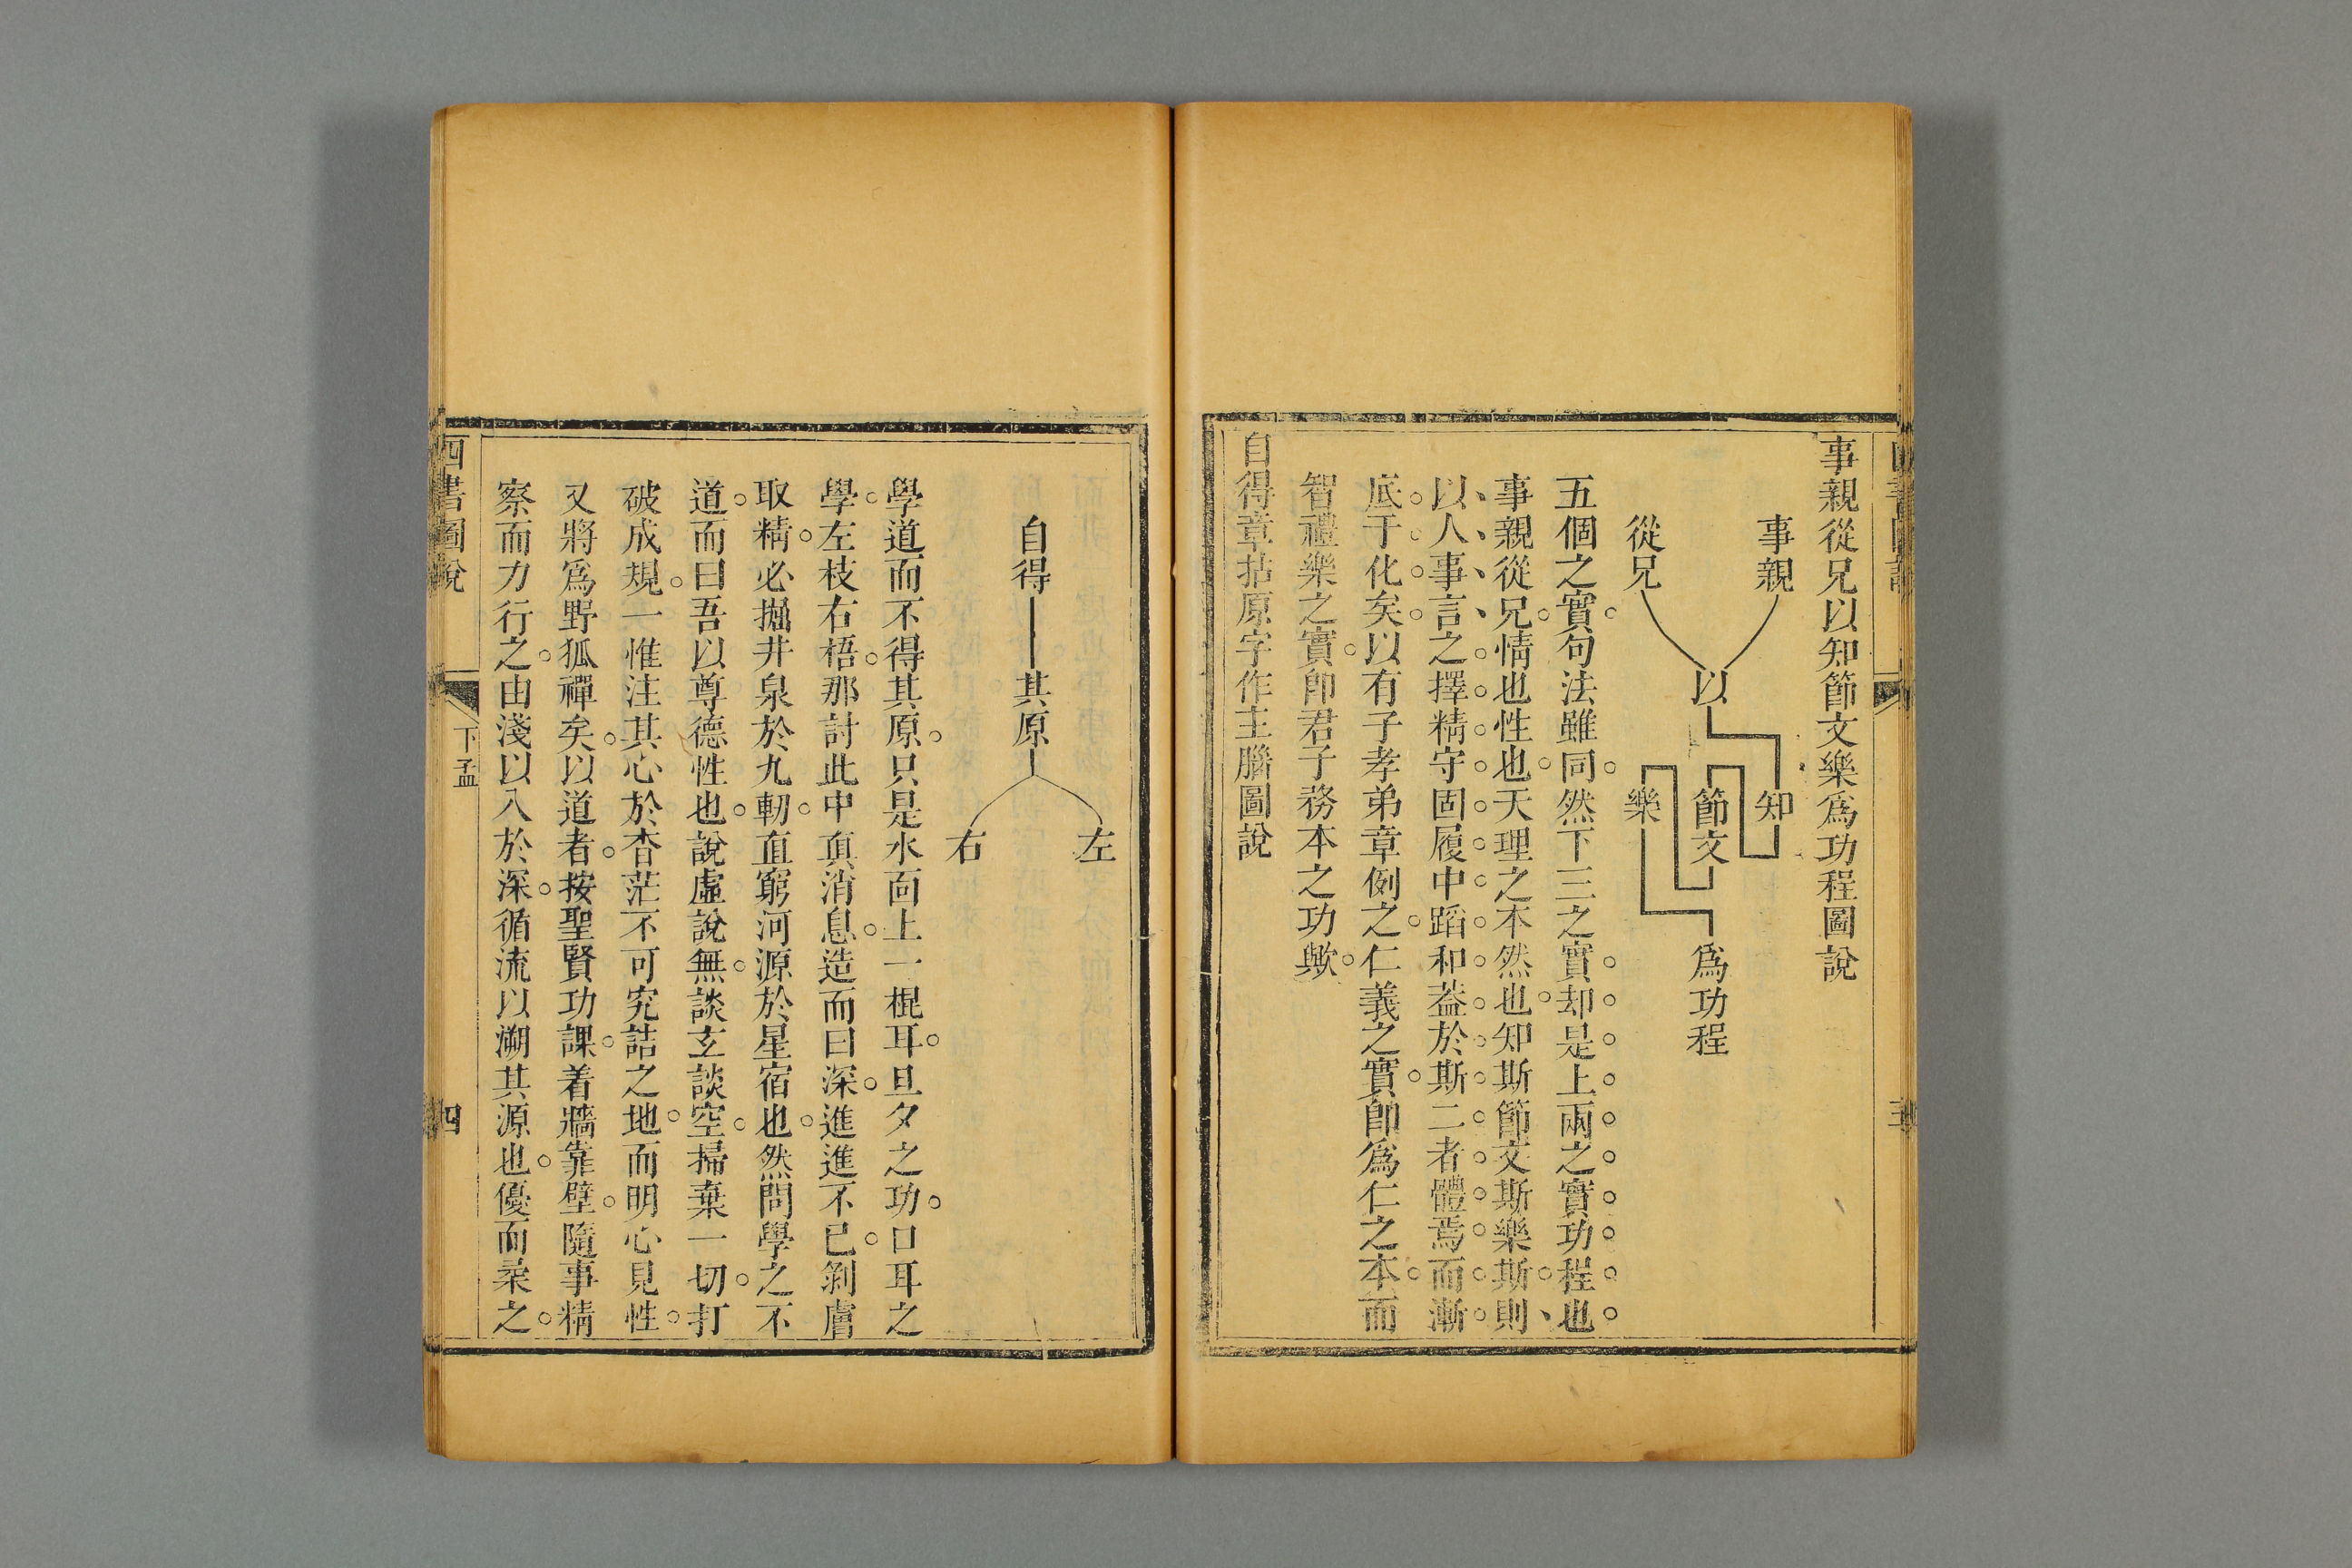 事親從兄以知節文樂爲功程圖說
事親
從兄
以
知
節文
樂
爲功程
五個之實句法雖同然下三之實却是上兩之實功程也
事親從兄情也性也天理之本然也知斯節文斯樂斯則
以人事言之擇精守固履中蹈和葢於斯二者體焉而漸
底于化矣以有子孝弟章例之仁義之實卽爲仁之本而
智禮樂之實卽君子務本之功歟
自得章拈原字作主腦圖說
自得
其原
左
右
學道而不得其原只是水面上一棍耳旦夕之功口耳之
學左枝右梧那討此中眞消息造而曰深進進不已剝膚
取精必掘井泉於九軔直窮河源於星宿也然問學之不
道而曰吾以尊德性也說虛說無談玄談空掃棄一切打
破成規一惟注其心於杳茫不可究詰之地而明心見性
又將爲野狐禪矣以道者按聖賢功課着牆靠壁隨事精
察而力行之由淺以入於深循流以溯其源也優而柔之
四書圖說
下孟
四